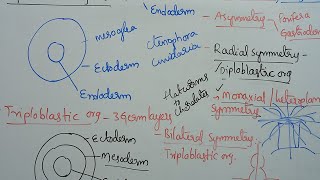 Endoderm
mesoglia
Ctenophora
Cnidaria
Ectoderm
Endoderm
Asymmetry
Porifera
Gastropod
Radial symmetry -
Triploblastic org
Flatworms
to
Chordates
Monaxial / Heteropolar
symmetry
Triploblastic org - 3 Germ layers
Ectoderm
Mesoderm
Bilateral symmetry
Triploblastic org.